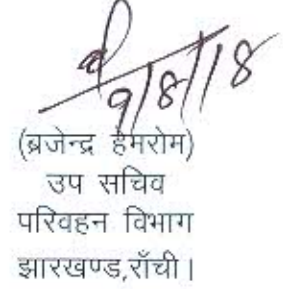 9/8/18
(ब्रजेन्द्र हेमरोम)
उप सचिव
परिवहन विभाग
झारखण्ड,राँची।